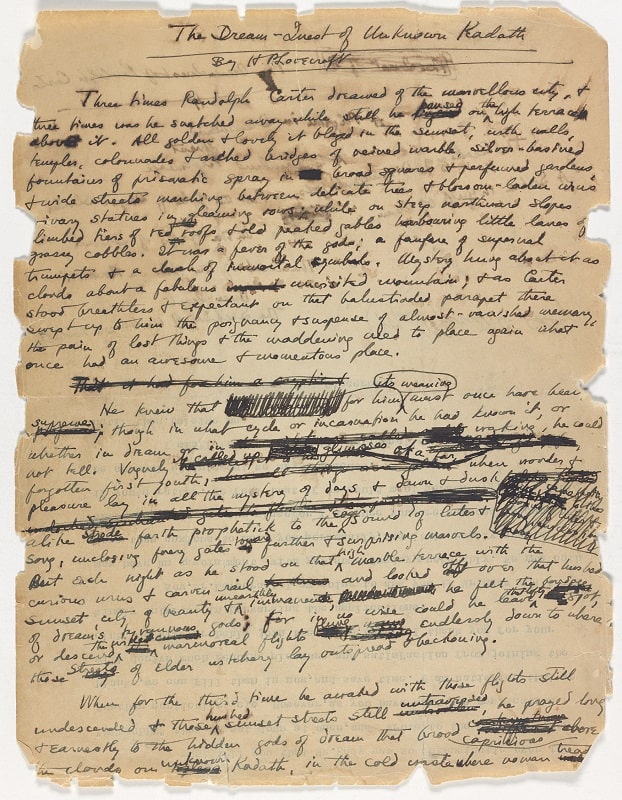 The Dream-Quest of Unknown Kadath
By H P Lovecraft
Three times Randolph Carter dreamed of the marvellous city, &
three times was he snatched away while still he paused on the high terrace
above it. All golden & lovely it blazed in the sunset, with walls,
temples, colonnades & arched bridges of veined marble, silver-basined
fountains of prismatic spray in broad squares & perfumed gardens,
& wide streets marching between delicate trees & blossom-laden urns
& ivory statues in gleaming rows; while on steep northward slopes
climbed tiers of red roofs & old peaked gables harbouring little lanes of
grassy cobbles. It was a fever of the gods; a fanfare of supernal
trumpets & a clash of immortal cymbals. Mystery hung about it as
clouds about a fabulous unvisited mountain; & as Carter
stood breathless & expectant on that balustraded parapet there
swept up to him the poignancy & suspense of almost-vanished memory,
the pain of lost things & the maddening need to place again what
once had an awesome & momentous place.
That it had for him a cryptic
He knew that for him its meaning must once have been
supreme; though in what cycle or incarnation he had known it, or
whether in dream or in waking, he could
not tell. Vaguely it called up glimpses of a far,
forgotten first youth, when wonder &
pleasure lay in all the mystery of days, & dawn & dusk
alike strode forth prophetick to the eager sound of lutes &
song, unclosing faery gates toward further & surprising marvels.
But each night as he stood on that high marble terrace with the
curious urns & carven rail and looked off over that hushed
sunset city of beauty & unearthly immanence, he felt the bondage
of dream's tyrannous gods; for in no wise could he leave that lofty spot,
or descend the wide marmoreal flights endlessly down to where
those streets of elder witchery lay outspread & beckoning.
When for the third time he awaked with those flights still
undescended & those hushed sunset streets still untraversed, he prayed long
& earnestly to the hidden gods of dream that brood capricious above
the clouds on unknown Kadath, in the cold waste where no man treads